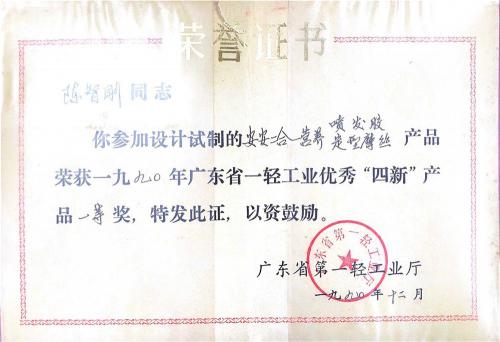 荣誉证书
陈智刚同志
你参加设计试制的安安二合一营养喷发胶定型摩丝产品
荣获一九九〇年广东省一轻工业优秀“四新”产
品一等奖，特发此证，以资鼓励。
广东省第一轻工业厅
一九九〇年十二月
广东省第一轻工业厅